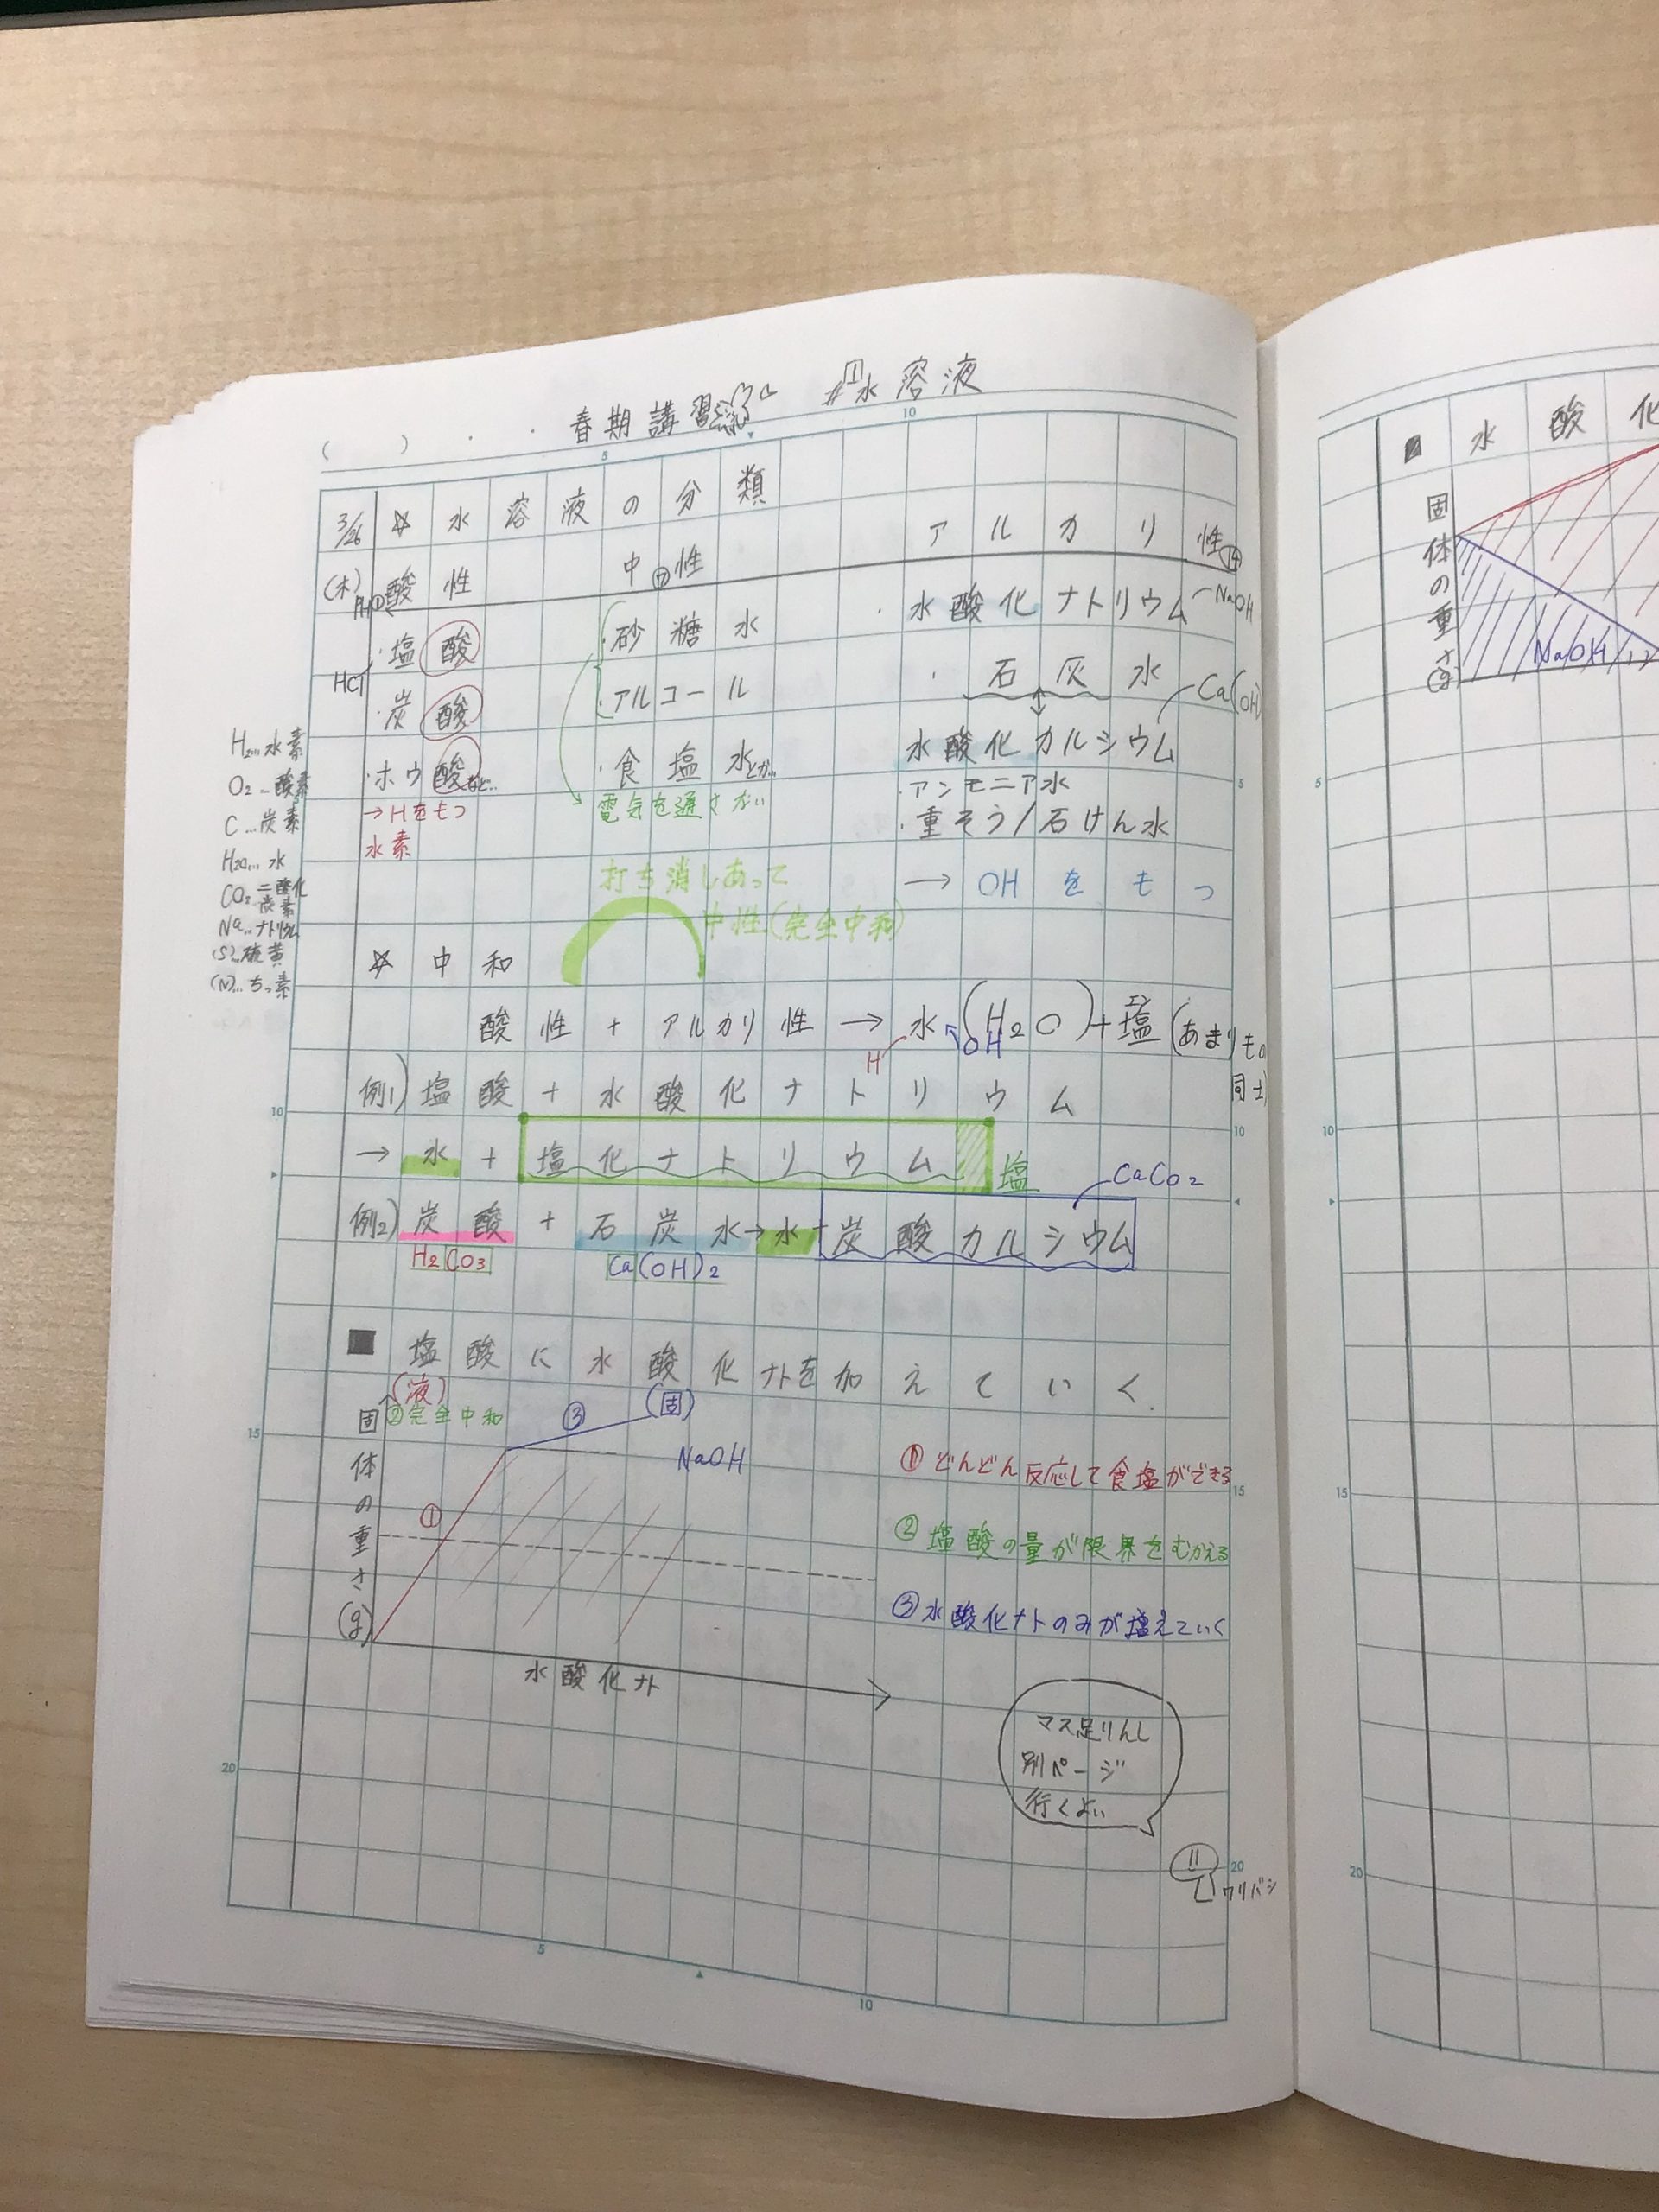 春期講習 #1水溶液
( )
3/26 ☆水溶液の分類
(木)
PH① 酸性 中⑦性 アルカリ性⑭
・塩酸
HCl
・炭酸
・ホウ酸など…
→Hをもつ
水素
・砂糖水
・アルコール
・食塩水とか…
電気を通さない
・水酸化ナトリウム NaOH
・石灰水 Ca(OH)
水酸化カルシウム
・アンモニア水
・重そう/石けん水
→OHをもつ
H2…水素
O2…酸素
C…炭素
H2O…水
CO2…二酸化炭素
Na…ナトリウム
(S)…硫黄
(N)…ちっ素
打ち消しあって
中性(完全中和)
☆中和
酸性+アルカリ性→水(H2O)+塩(あまりもの同士)
エン
H OH
例1)塩酸+水酸化ナトリウム
→水+塩化ナトリウム 塩
CaCo2
例2)炭酸+石炭水→水+炭酸カルシウム
H2CO3 Ca(OH)2
■塩酸に水酸化ナトを加えていく.
(液)
②完全中和 ③ (固)
NaOH
①
固体の重さ(g)
水酸化ナト
①どんどん反応して食塩ができる
②塩酸の量が限界をむかえる
③水酸化ナトのみが増えていく
マス足りんし
別ページ
行くよい
ワリバシ
5
10
5
10
15
20
5
10
15
20
5
10
■水酸化
固体の重さ(g)
NaOH
5
10
15
20